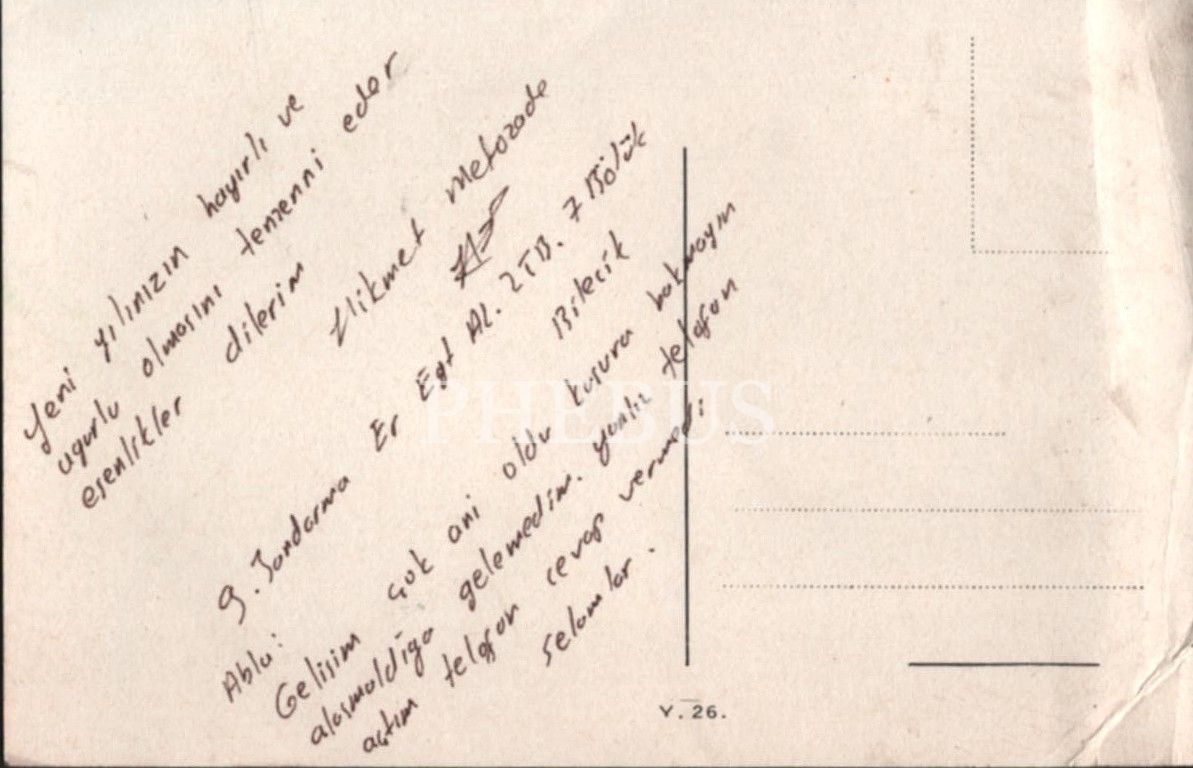 Yeni yılınızın hayırlı ve
uğurlu olmasını temenni eder
esenlikler dilerim
Hikmet Metozade
9. Jandarma Er Eğt Al. 2 TB. 7 Bölük
Bilecik
Abla:
Gelişim çok ani oldu kusura bakmayın
gelemedim. yanlız telefon
açtım telefon cevap vermedi
Selamlar.
PHEBUS
Y. 26.